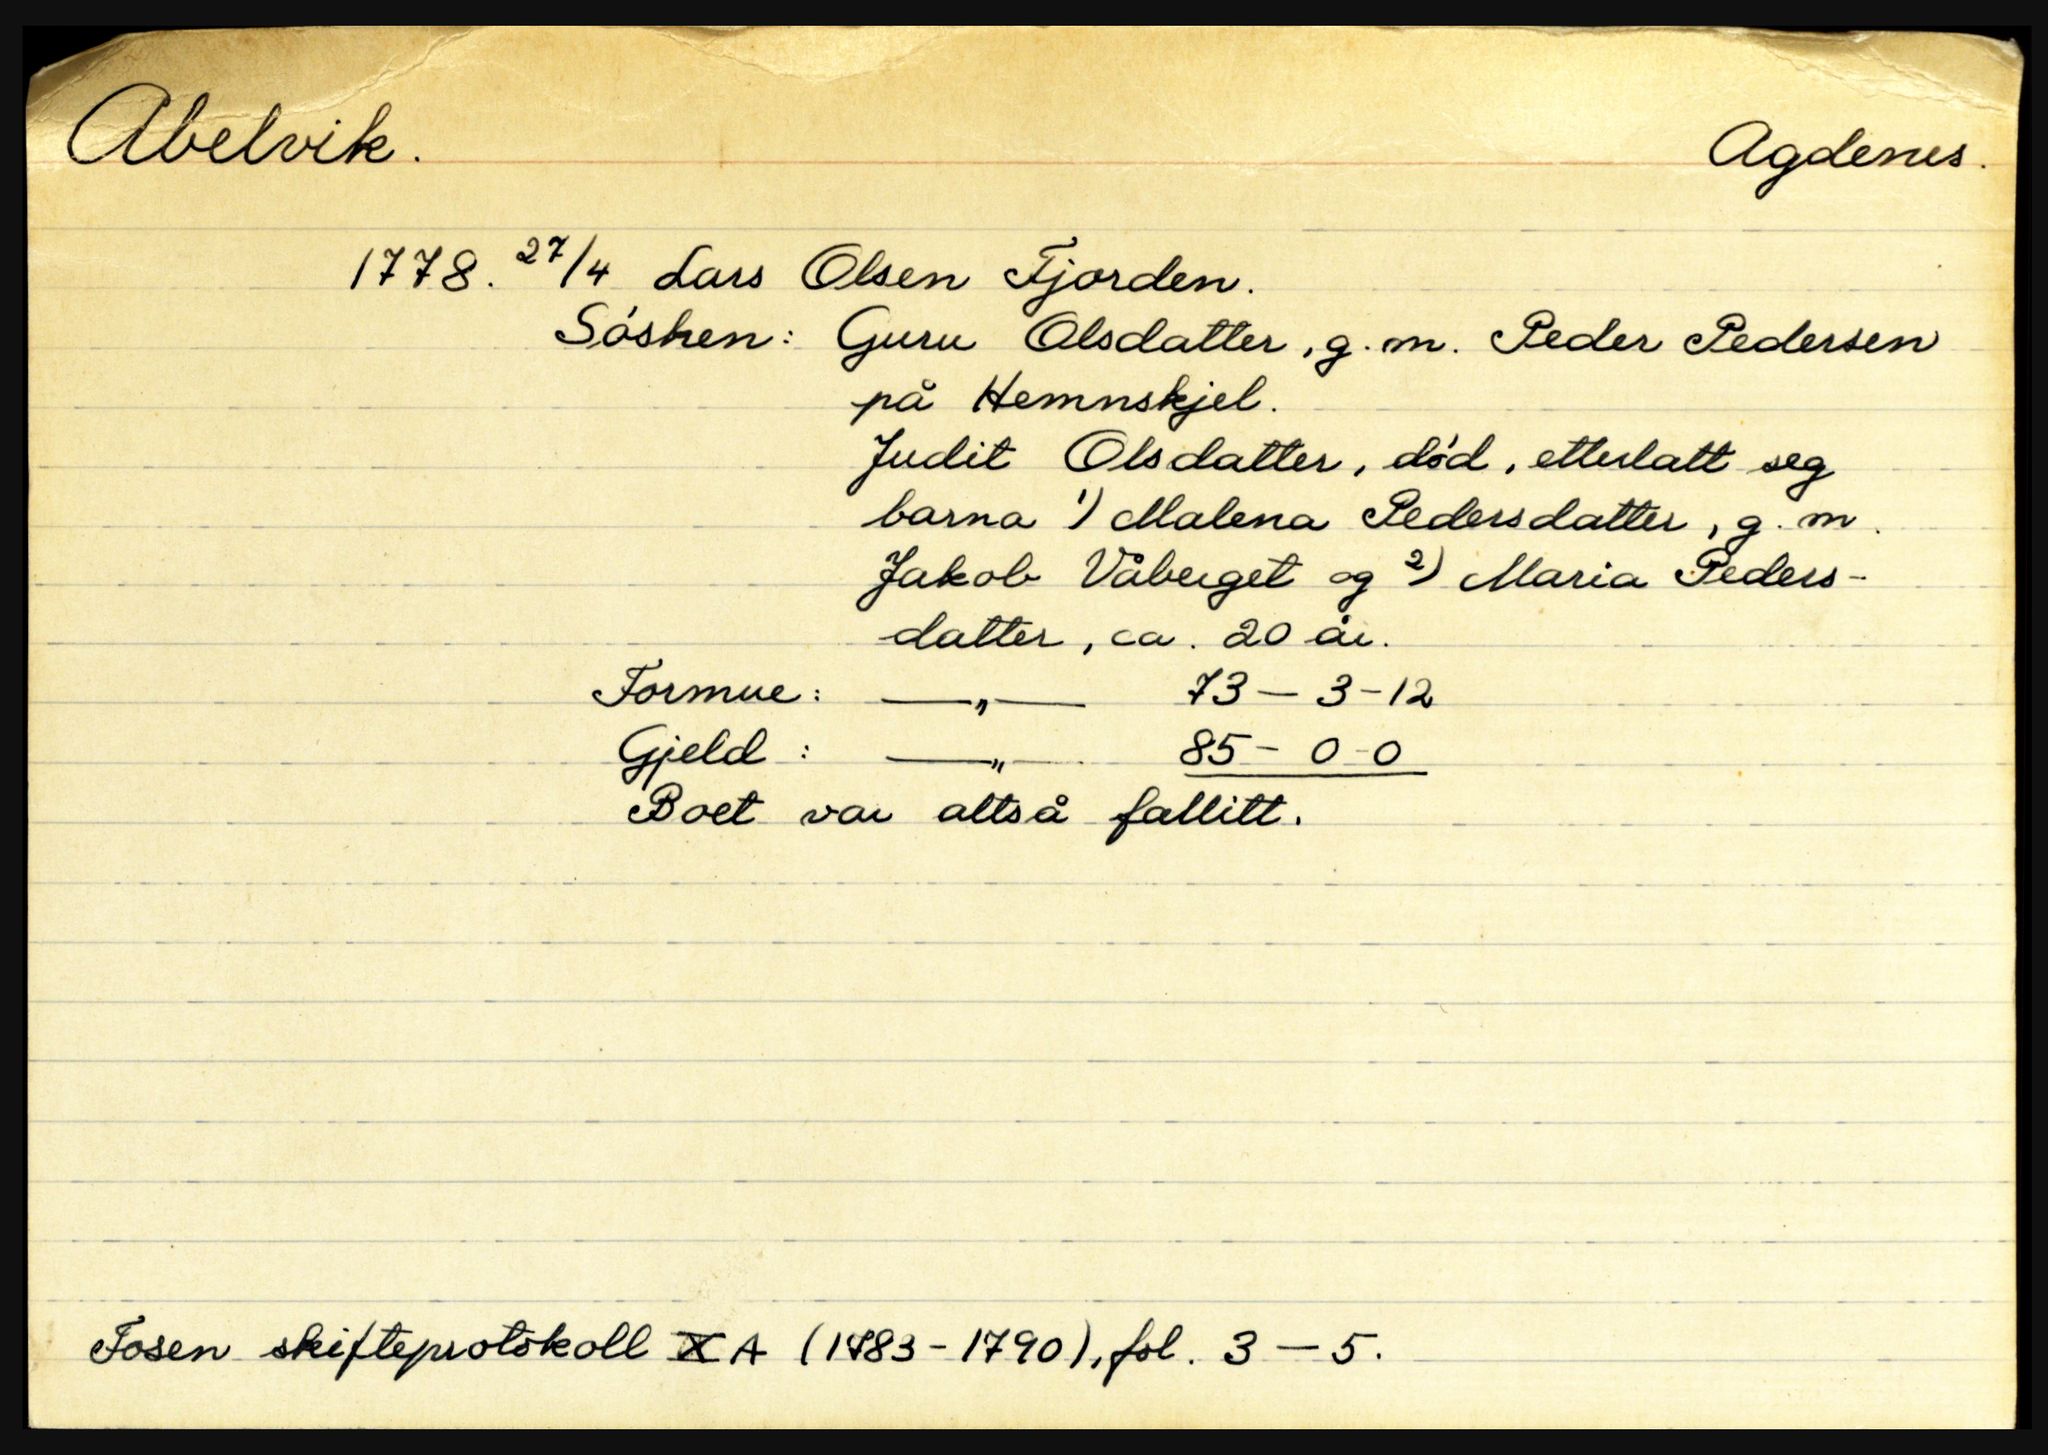 Abelvik.
Agdenes.
1778. 27/4 Lars Olsen Fjorden.
Søsken: Guru Olsdatter, g. m. Peder Pedersen
på Hemnskjel.
Judit Olsdatter, død, etterlatt seg
barna 1) Malena Pedersdatter, g. m.
Jakob Våberget og 2) Maria Peders-
datter, ca. 20 år.
Formue: —„— 73 — 3 - 12
Gjeld: —„— 85 - 0 - 0
Boet var altså fallitt.
Fosen skifteprotokoll X A (1783-1790), fol. 3 — 5.